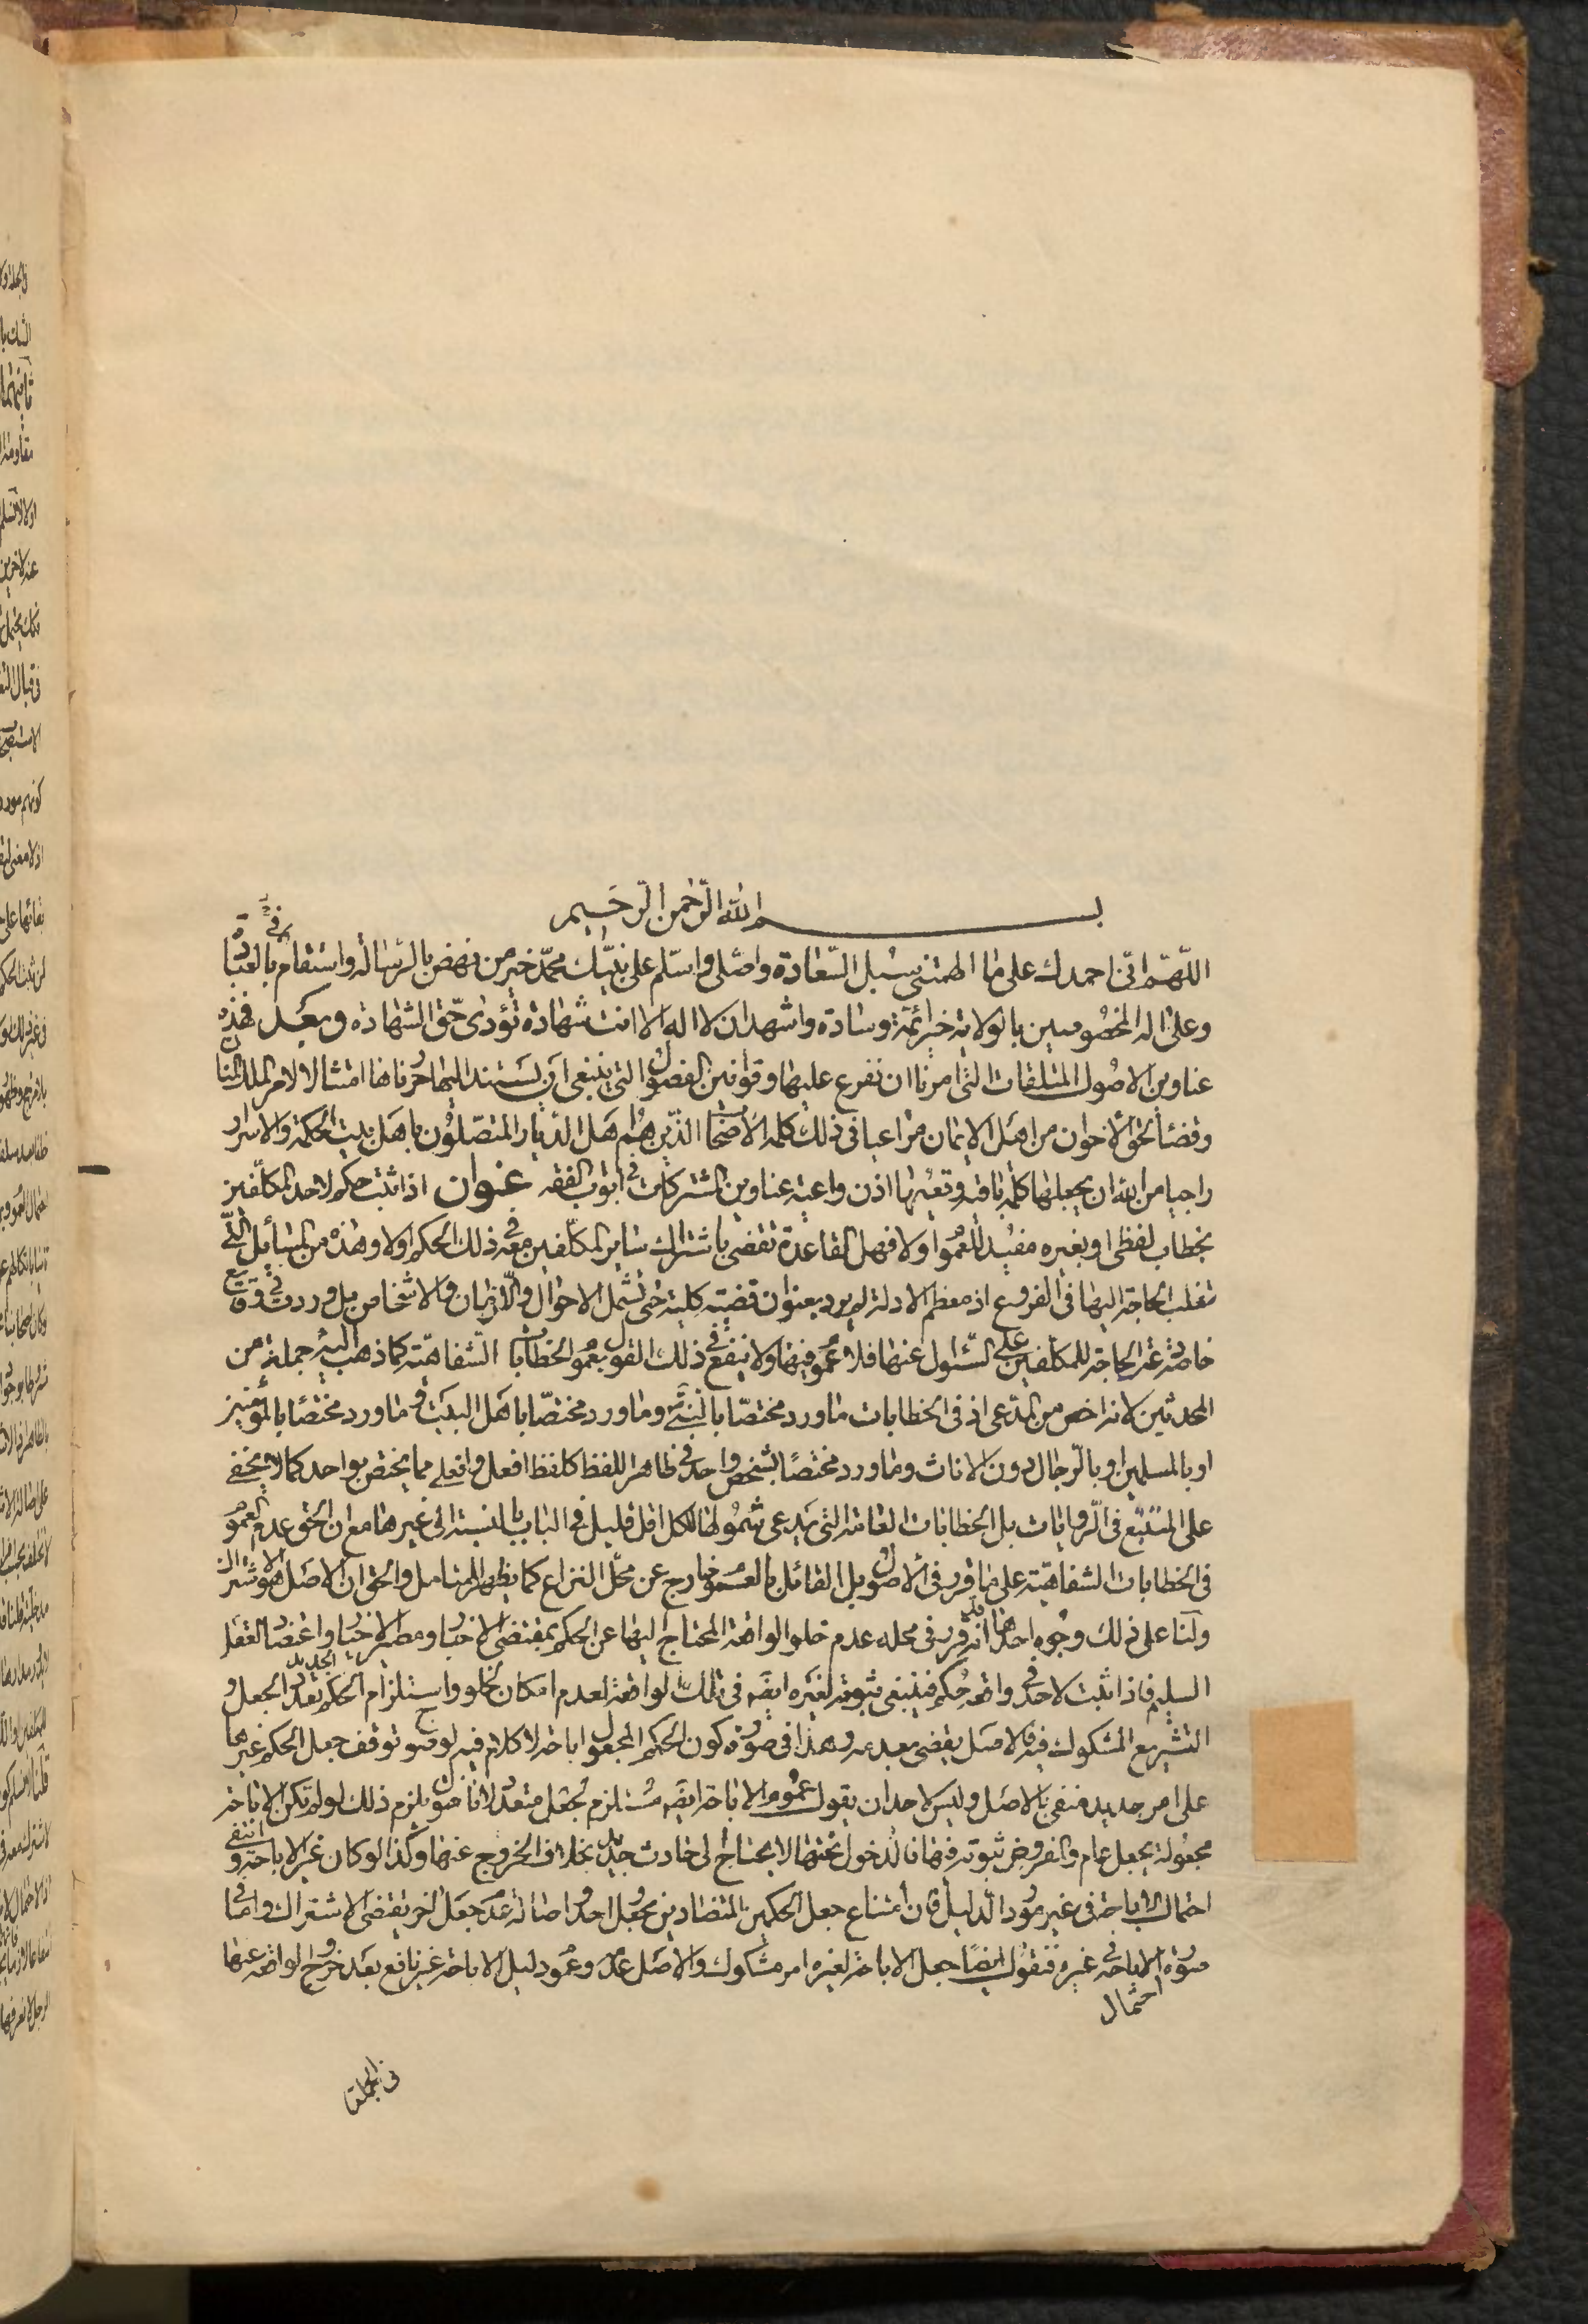 بسم الله الرحمن الرحيم
اللهم اني احمدك على ما الهمتني سبل السعادة واصلي واسلم على نبيك محمد خير من نهض بالرسالة واستقام في العبادة
وعلى اله المخصوصين بالولاية خير ائمة وسادة واشهد ان لا اله الا انت شهادة تؤدى حق الشهادة وبعد فهذه
عناوين الاصول المتلقات التي امرنا ان نفرع عليها وقوانين الفصول التي ينبغي ان يستند اليها حررناها امتثالا لامر الملك المنان
وقضاء لحق الاخوان من اهل الايمان مراعيا في ذلك كلمة الاصحاب الذين هم اهل الديار المتصلون باهل بيت الحكمة والاسرار
راجيا من الله ان يجعلها كلمة باقية وتعيها اذن واعية عناوين المشتركات في ابواب الفقه عنوان اذا ثبت حكم لاحد المكلفين
بخطاب لفظي او بغيره مفيد للعموم اولا فهل القاعدة تقضي باشتراك سائر المكلفين معه في ذلك الحكم اولا وهذه من المسائل التي
تغلب الحاجة اليها في الفروع اذ معظم الادلة لم يرد بعنوان قضية كلية حتى تشمل الاحوال والازمان والاشخاص بل وردت في وقايع
خاصة عند الحاجة للمكلفين على السئوال عنها فلا عموم فيها ولا ينفع في ذلك القول بعموم الخطابات الشفاهية كما ذهب اليه جملة من
المحدثين لانه اخص من المدعى اذ في الخطابات ما ورد مختصا بالنبي وما ورد مختصا باهل البيت وما ورد مختصا بالمؤمنين
او بالمسلمين او بالرجال دون الاناث وما ورد مختصا بشخص واحد في ظاهر اللفظ كلفظ افعل وافعلي مما يختص بواحد كما لا يخفى
على المتتبع في الروايات بل الخطابات العامة التي يدعى شمولها للكل اقل قليل في الباب بالنسبة الى غيرها مع ان الحق عدم العموم
في الخطابات الشفاهية على ما قرر في الاصول بل القائل بالعموم خارج عن محل النزاع كما يظهر للمتامل والحق ان الاصل هو الاشتراك
ولنا على ذلك وجوه احدها انه قد قرر في محله عدم خلو الواقعة المحتاج اليها عن الحكم بمقتضى الاخبار ومصير الاخيار واعتضاد العقل
السليم فاذا ثبت لاحد في واقعة حكم فينبغي ثبوته لغيره ايضا في تلك الواقعة لعدم امكان الخلو واستلزام الحكم الجديد تعدد الجعل و
التشريع المشكوك فيه فالاصل يقضي بعدمه وهذا في صورة كون الحكم المجعول اباحة لا كلام فيه لوضوح توقف جعل الحكم غيرها
على امر جديد منفي بالاصل وليس لاحد ان يقول عموم الاباحة ايضا مستلزم لجعل متعدد لانا نقول يلزم ذلك لو لم تكن الاباحة
مجعولة بجعل عام والمفروض ثبوته فيها فالدخول تحتها لا يحتاج الى حادث جديد بخلاف الخروج عنها وكذا لو كان غير الاباحة وانتفى
احتمال الاباحة في غير مورد الدليل فان امتناع جعل الحكمين المتضادين بجعل واحد واصالة عدم جعل اخر يقتضي الاشتراك واما في
صورة احتمال الاباحة في غيره فنقول ايضا جعل الاباحة لغيره امر مشكوك والاصل عدمه وعموم دليل الاباحة غير نافع بعد خروج الواقعة عنها
في الجملة